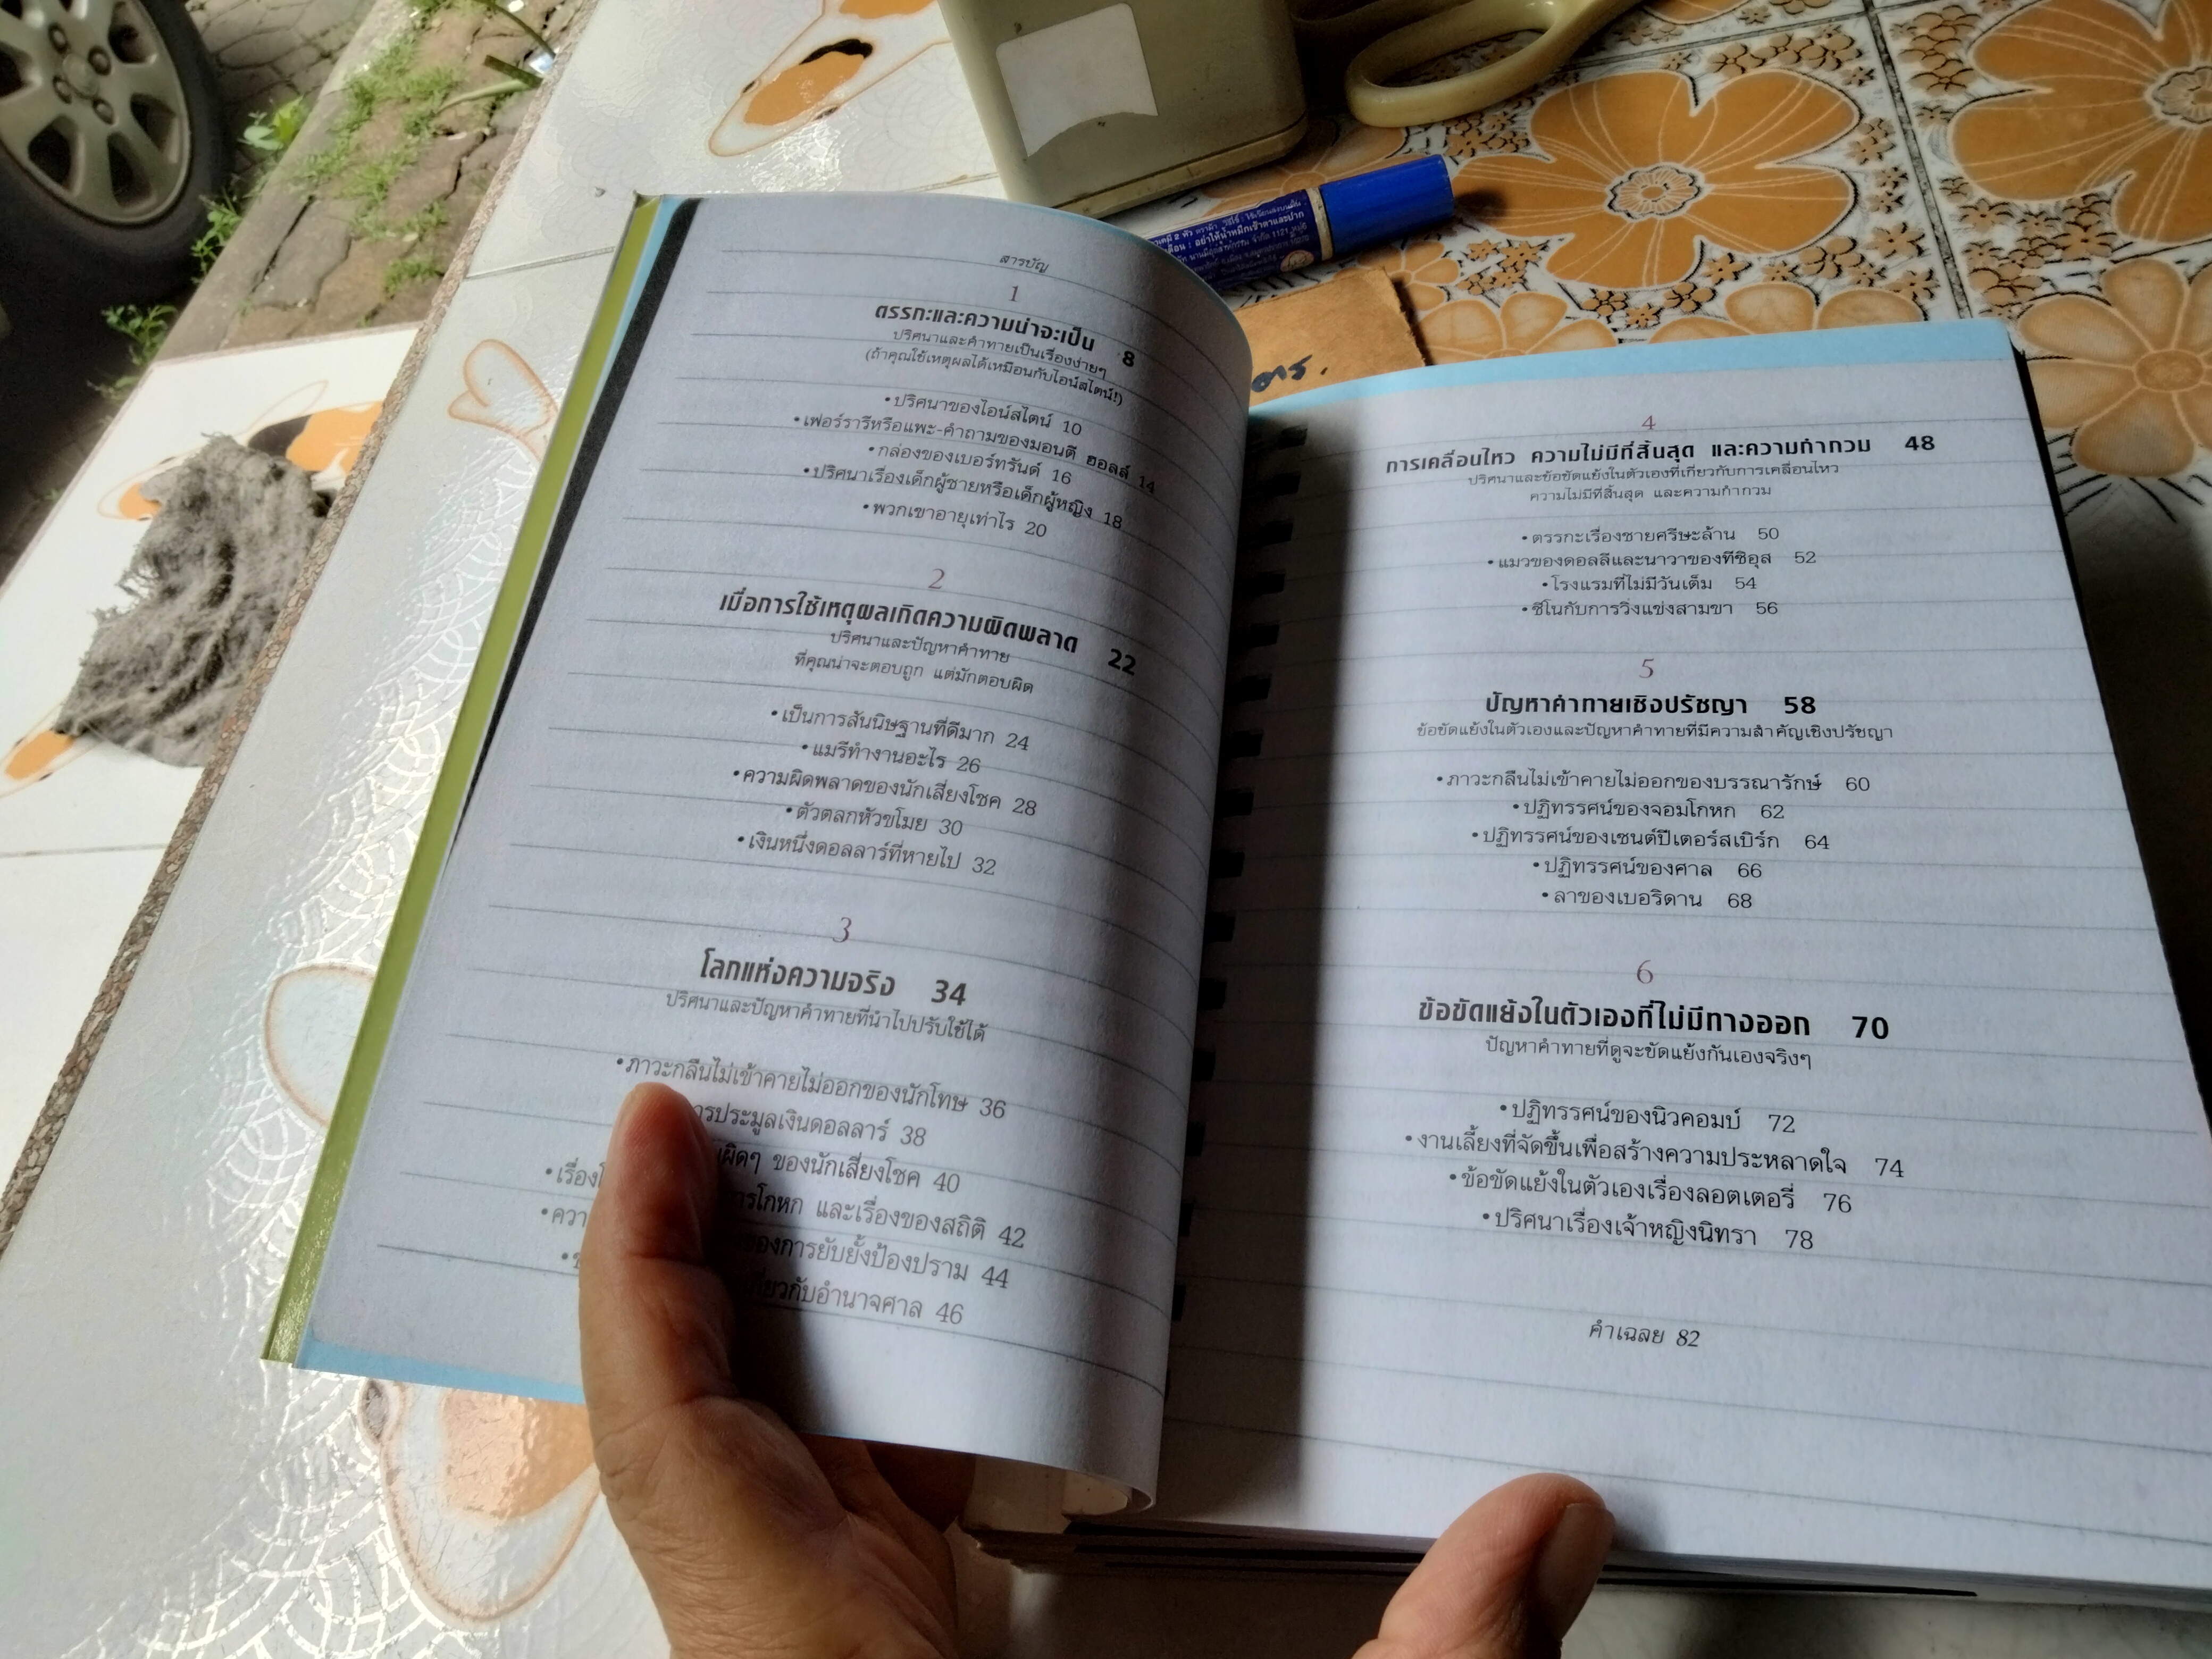 สารบัญ
1
ตรรกะและความน่าจะเป็น 8
ปริศนาและคำทายเป็นเรื่องง่ายๆ
(ถ้าคุณใช้เหตุผลได้เหมือนกับไอน์สไตน์!)
•ปริศนาของไอน์สไตน์ 10
•เฟอร์รารีหรือแพะ-คำถามของมอนตี ฮอลล์ 14
•กล่องของเบอร์ทรันด์ 16
•ปริศนาเรื่องเด็กผู้ชายหรือเด็กผู้หญิง 18
•พวกเขาอายุเท่าไร 20
2
เมื่อการใช้เหตุผลเกิดความผิดพลาด 22
ปริศนาและปัญหาคำทาย
ที่คุณน่าจะตอบถูก แต่มักตอบผิด
•เป็นการสันนิษฐานที่ดีมาก 24
•แมรีทำงานอะไร 26
•ความผิดพลาดของนักเสี่ยงโชค 28
•ตัวตลกหัวขโมย 30
•เงินหนึ่งดอลลาร์ที่หายไป 32
3
โลกแห่งความจริง 34
ปริศนาและปัญหาคำทายที่นำไปปรับใช้ได้
•ภาวะกลืนไม่เข้าคายไม่ออกของนักโทษ 36
การประมูลเงินดอลลาร์ 38
ผิดๆ ของนักเสี่ยงโชค 40
•เรื่อง การโกหก และเรื่องของสถิติ 42
•ควา ของการยับยั้งป้องปราม 44
เกี่ยวกับอำนาจศาล 46
4
การเคลื่อนไหว ความไม่มีที่สิ้นสุด และความกำกวม 48
ปริศนาและข้อขัดแย้งในตัวเองที่เกี่ยวกับการเคลื่อนไหว
ความไม่มีที่สิ้นสุด และความกำกวม
•ตรรกะเรื่องชายศรีษะล้าน 50
•แมวของดอลลีและนาวาของทีซิอุส 52
•โรงแรมที่ไม่มีวันเต็ม 54
•ซีโนกับการวิ่งแข่งสามขา 56
5
ปัญหาคำทายเชิงปรัชญา 58
ข้อขัดแย้งในตัวเองและปัญหาคำทายที่มีความสำคัญเชิงปรัชญา
•ภาวะกลืนไม่เข้าคายไม่ออกของบรรณารักษ์ 60
•ปฏิทรรศน์ของจอมโกหก 62
•ปฏิทรรศน์ของเซนต์ปีเตอร์สเบิร์ก 64
•ปฏิทรรศน์ของศาล 66
•ลาของเบอริดาน 68
6
ข้อขัดแย้งในตัวเองที่ไม่มีทางออก 70
ปัญหาคำทายที่ดูจะขัดแย้งกันเองจริงๆ
•ปฏิทรรศน์ของนิวคอมบ์ 72
•งานเลี้ยงที่จัดขึ้นเพื่อสร้างความประหลาดใจ 74
•ข้อขัดแย้งในตัวเองเรื่องลอตเตอรี่ 76
•ปริศนาเรื่องเจ้าหญิงนิทรา 78
คำเฉลย 82